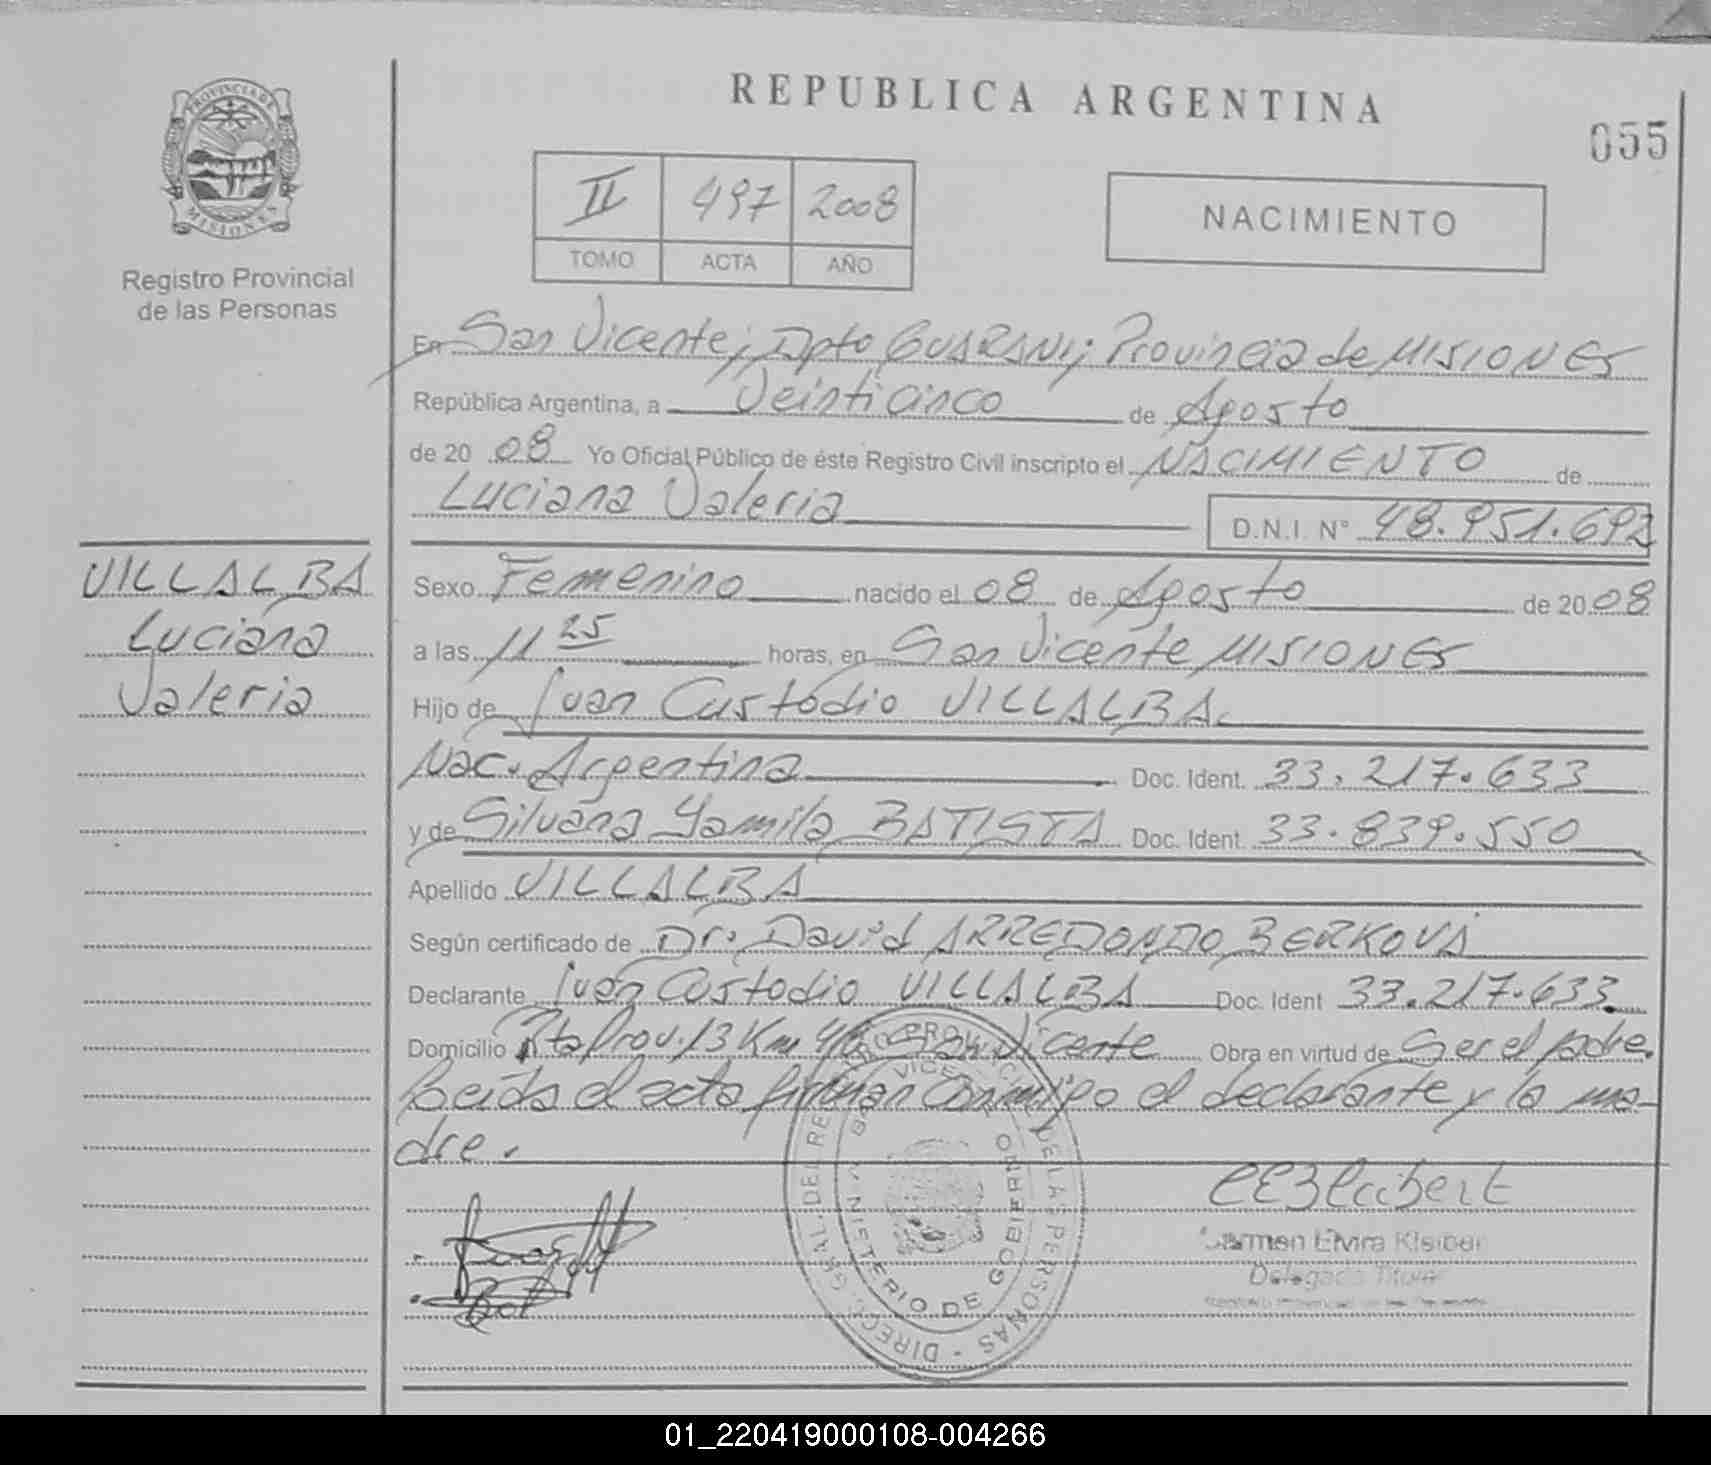 REPUBLICA ARGENTINA
055
PROVINCIA DE
MISIONES
Registro Provincial
de las Personas
II 497 2008
TOMO ACTA AÑO
NACIMIENTO
En San Vicente; Dpto GUARANI; Provincia de MISIONES
República Argentina, a Veinticinco de Agosto
de 2008 Yo Oficial Público de éste Registro Civil inscripto el NACIMIENTO de
Luciana Valeria D.N.I. N° 48.951.692
VILLALBA
Luciana
Valeria
Sexo Femenino nacido el 08 de Agosto de 2008
a las 11 25 horas, en San Vicente MISIONES
Hijo de Juan Custodio VILLALBA.
Nac. Argentina Doc. Ident. 33.217.633
y de Silvana Yamila BATISTA Doc. Ident. 33.839.550
Apellido VILLALBA
Según certificado de Dr. David ARREDONDO BERKOVA
Declarante Juan Custodio VILLALBA Doc. Ident 33.217.633
Domicilio Rta Prov. 13 Km San Vicente Obra en virtud de Ser el padre.
Leída el acta firman conmigo el declarante y la ma-
dre.
Carmen Elvira Kleiber
Delegada Titular
MINISTERIO DE GOBIERNO
DE LAS PERSONAS
01_220419000108-004266